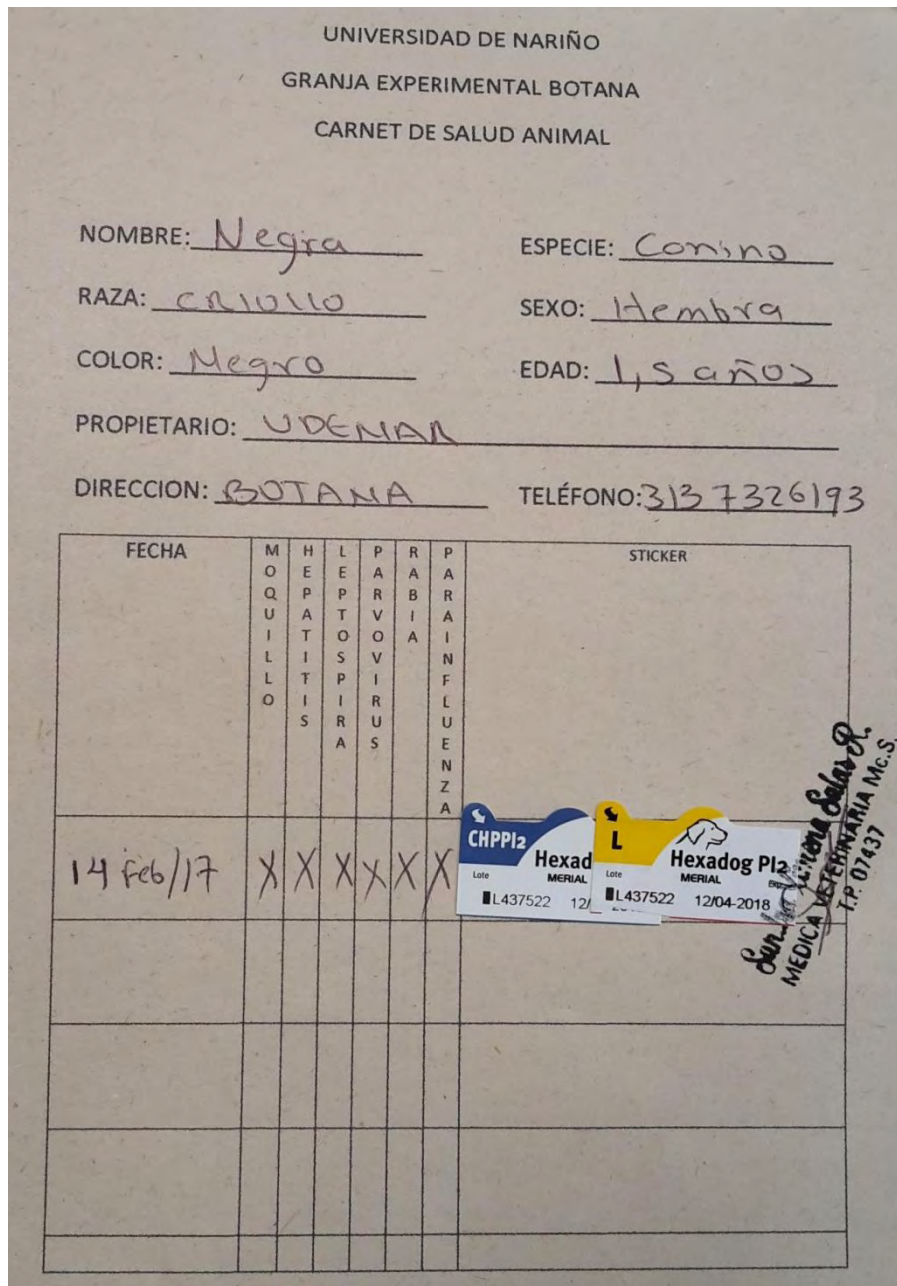 UNIVERSIDAD DE NARIÑO
GRANJA EXPERIMENTAL BOTANA
CARNET DE SALUD ANIMAL
NOMBRE: Negra ESPECIE: Canino
RAZA: CRIOLLO SEXO: Hembra
COLOR: Negro EDAD: 1,5 años
PROPIETARIO: UDENAR
DIRECCION: BOTANA TELÉFONO: 313 7326193
FECHA MOQUILLO HEPATITIS LEPTOSPIRA PARVOVIRUS RABIA PARAINFLUENZA STICKER
14 Feb/17 X X X X X X
CHPPI2
Hexad
MERIAL
Lote
L437522 12/
L
Hexadog PI2
MERIAL
Lote
L437522 12/04-2018
Salas R.
MEDICA VETERINARIA Mc.S.
T.P. 07437